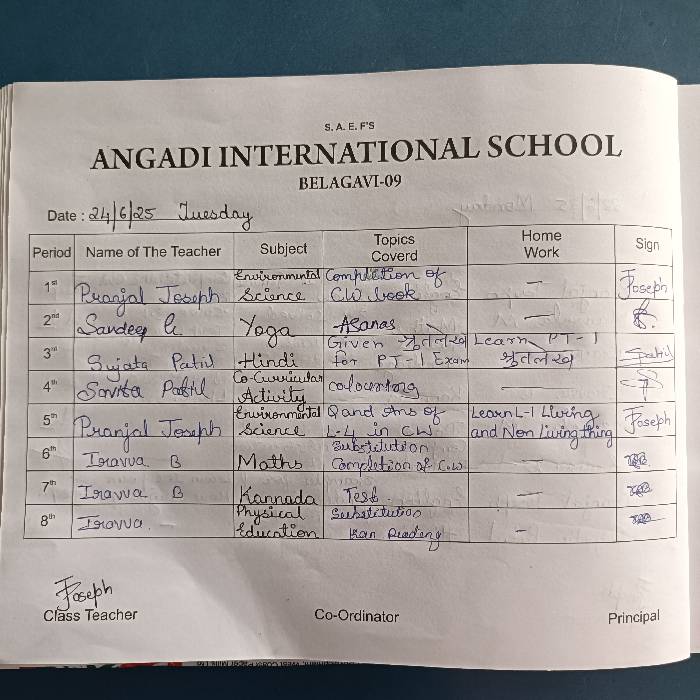 S. A. E. F'S
ANGADI INTERNATIONAL SCHOOL
BELAGAVI-09
Date : 24/6/25 Tuesday
Period Name of The Teacher Subject Topics Coverd Home Work Sign
1st Pranjal Joseph Environmental Science Completion of CW book — Joseph
2nd Sandeep G Yoga Asanas —
3rd Sujata Patil Hindi Given श्रुतलेख for PT-1 Exam Learn PT-1 श्रुतलेख SPatil
4th Savita Patil Co-Curricular Activity colouring —
5th Pranjal Joseph Environmental Science Q and Ans of L-4 in CW Learn L-1 Living and Non Living thing Joseph
6th Iravva B Maths Substitution Completion of C.W —
7th Iravva B Kannada Test. —
8th Iravva Physical Education Substitution Kan Reading –
Joseph
Class Teacher Co-Ordinator Principal